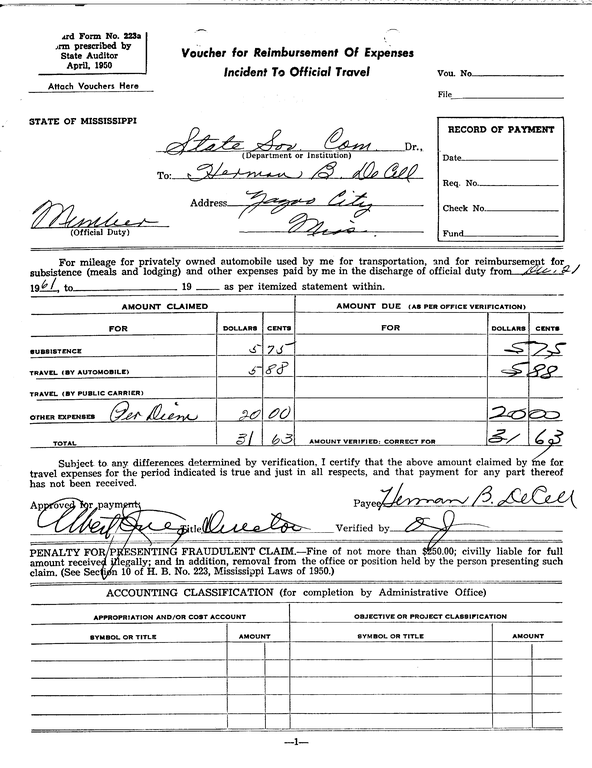 ard Form No. 223a
rm prescribed by
State Auditor
April, 1950
Attach Vouchers Here
Voucher for Reimbursement Of Expenses
Incident To Official Travel
Vou. No.
File
STATE OF MISSISSIPPI
State Sov. Com Dr.,
(Department or Institution)
To: Herman B. DeCell
Address Yazoo City
Miss.
Member
(Official Duty)
RECORD OF PAYMENT
Date
Req. No.
Check No.
Fund
For mileage for privately owned automobile used by me for transportation, and for reimbursement for
subsistence (meals and lodging) and other expenses paid by me in the discharge of official duty from Dec. 21
1961, to 19 as per itemized statement within.
AMOUNT CLAIMED AMOUNT DUE (AS PER OFFICE VERIFICATION)
FOR DOLLARS CENTS FOR DOLLARS CENTS
SUBSISTENCE 5 75 5 75
TRAVEL (BY AUTOMOBILE) 5 88 5 88
TRAVEL (BY PUBLIC CARRIER)
OTHER EXPENSES Per Diem 20 00 20 00
TOTAL 31 63 AMOUNT VERIFIED: CORRECT FOR 31 63
Subject to any differences determined by verification, I certify that the above amount claimed by me for
travel expenses for the period indicated is true and just in all respects, and that payment for any part thereof
has not been received.
Approved for payment Payee Herman B. DeCell
Albert Title Director Verified by
PENALTY FOR PRESENTING FRAUDULENT CLAIM.—Fine of not more than $250.00; civilly liable for full
amount received illegally; and in addition, removal from the office or position held by the person presenting such
claim. (See Section 10 of H. B. No. 223, Mississippi Laws of 1950.)
ACCOUNTING CLASSIFICATION (for completion by Administrative Office)
APPROPRIATION AND/OR COST ACCOUNT OBJECTIVE OR PROJECT CLASSIFICATION
SYMBOL OR TITLE AMOUNT SYMBOL OR TITLE AMOUNT
—1—